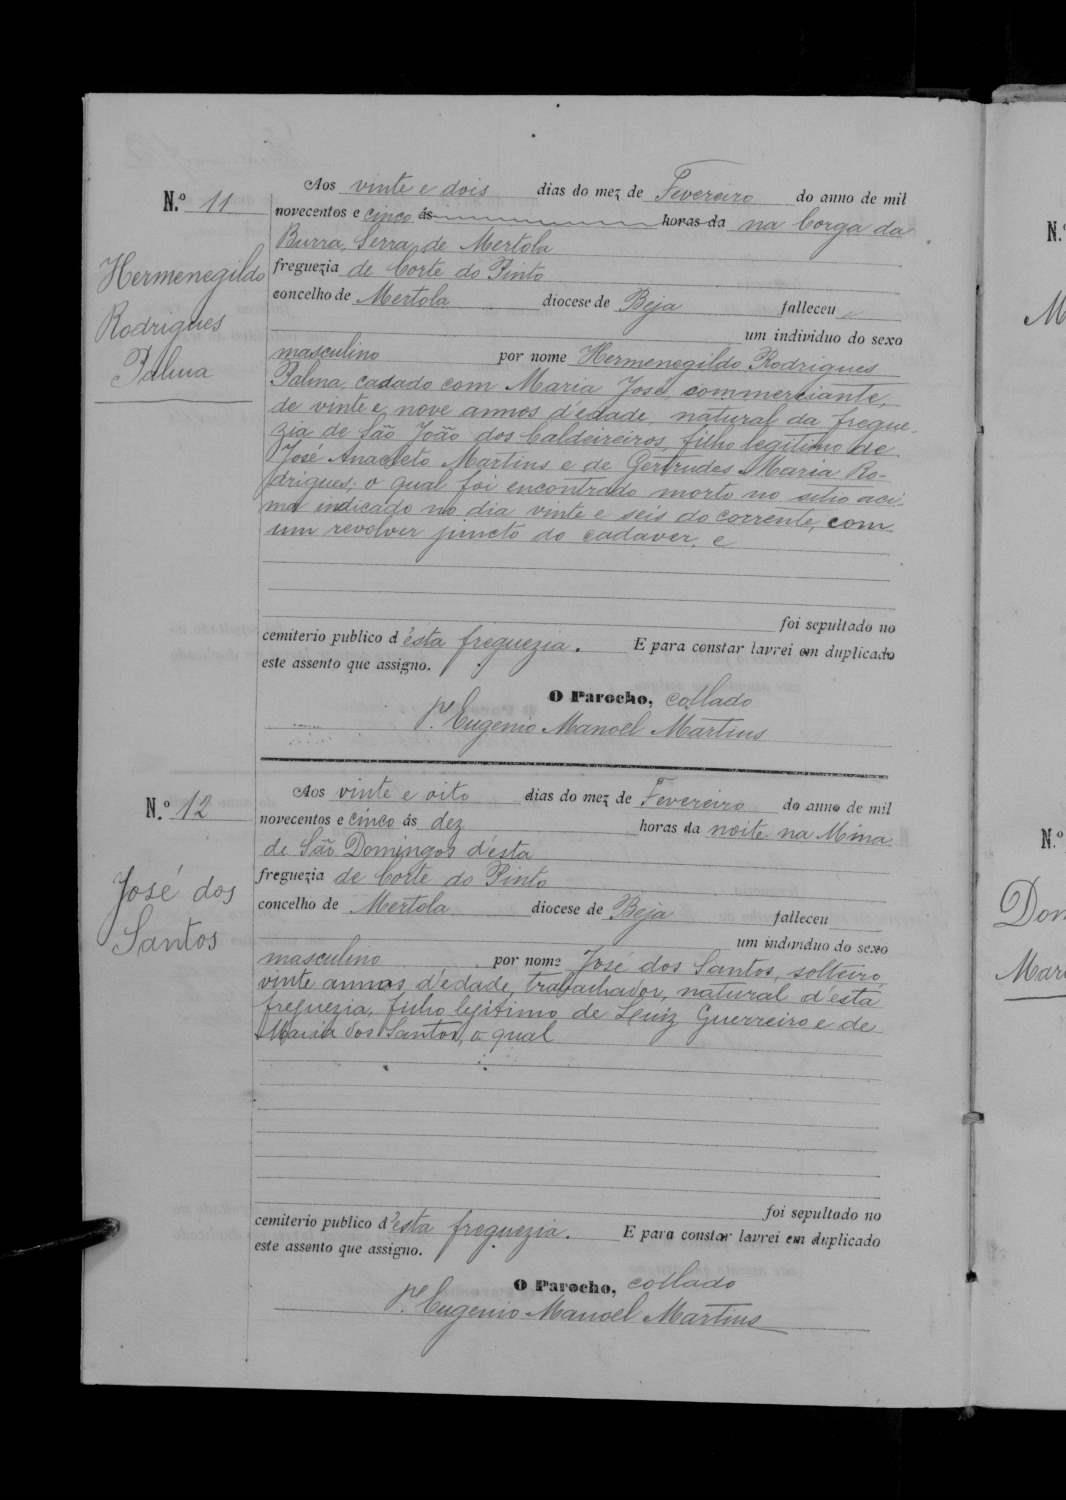 N.º 11
Hermenegildo
Rodrigues
Palma
Aos vinte e dois dias do mez de Fevereiro do anno de mil
novecentos e cinco ás horas da na Corga da
Burra, Serra de Mertola
freguezia de Corte do Pinto
concelho de Mertola diocese de Beja falleceu
um individuo do sexo
masculino por nome Hermenegildo Rodrigues
Palma, casado com Maria José, commerciante,
de vinte e nove annos d'edade, natural da fregue-
zia de São João dos Caldeireiros, filho legitimo de
José Anacleto Martins e de Gertrudes Maria Ro-
drigues; o qual foi encontrado morto no sitio aci-
ma indicado no dia vinte e seis do corrente, com
um revolver juncto do cadaver, e
foi sepultado no
cemiterio publico d'esta freguezia. E para constar lavrei em duplicado
este assento que assigno.
O Parocho, collado
P.e Eugenio Manoel Martins
N.º 12
José dos
Santos
Aos vinte e oito dias do mez de Fevereiro do anno de mil
novecentos e cinco ás dez horas da noite na Mina
de São Domingos d'esta
freguezia de Corte do Pinto
concelho de Mertola diocese de Beja falleceu
um individuo do sexo
masculino por nome José dos Santos, solteiro,
vinte annos d'édade, trabalhador, natural d'esta
freguezia, filho legitimo de Luiz Guerreiro e de
Maria dos Santos, o qual
foi sepultado no
cemiterio publico d'esta freguezia. E para constar lavrei em duplicado
este assento que assigno.
O Parocho, collado
P.e Eugenio Manoel Martins
N.º
M
N.º
Dom
Mari